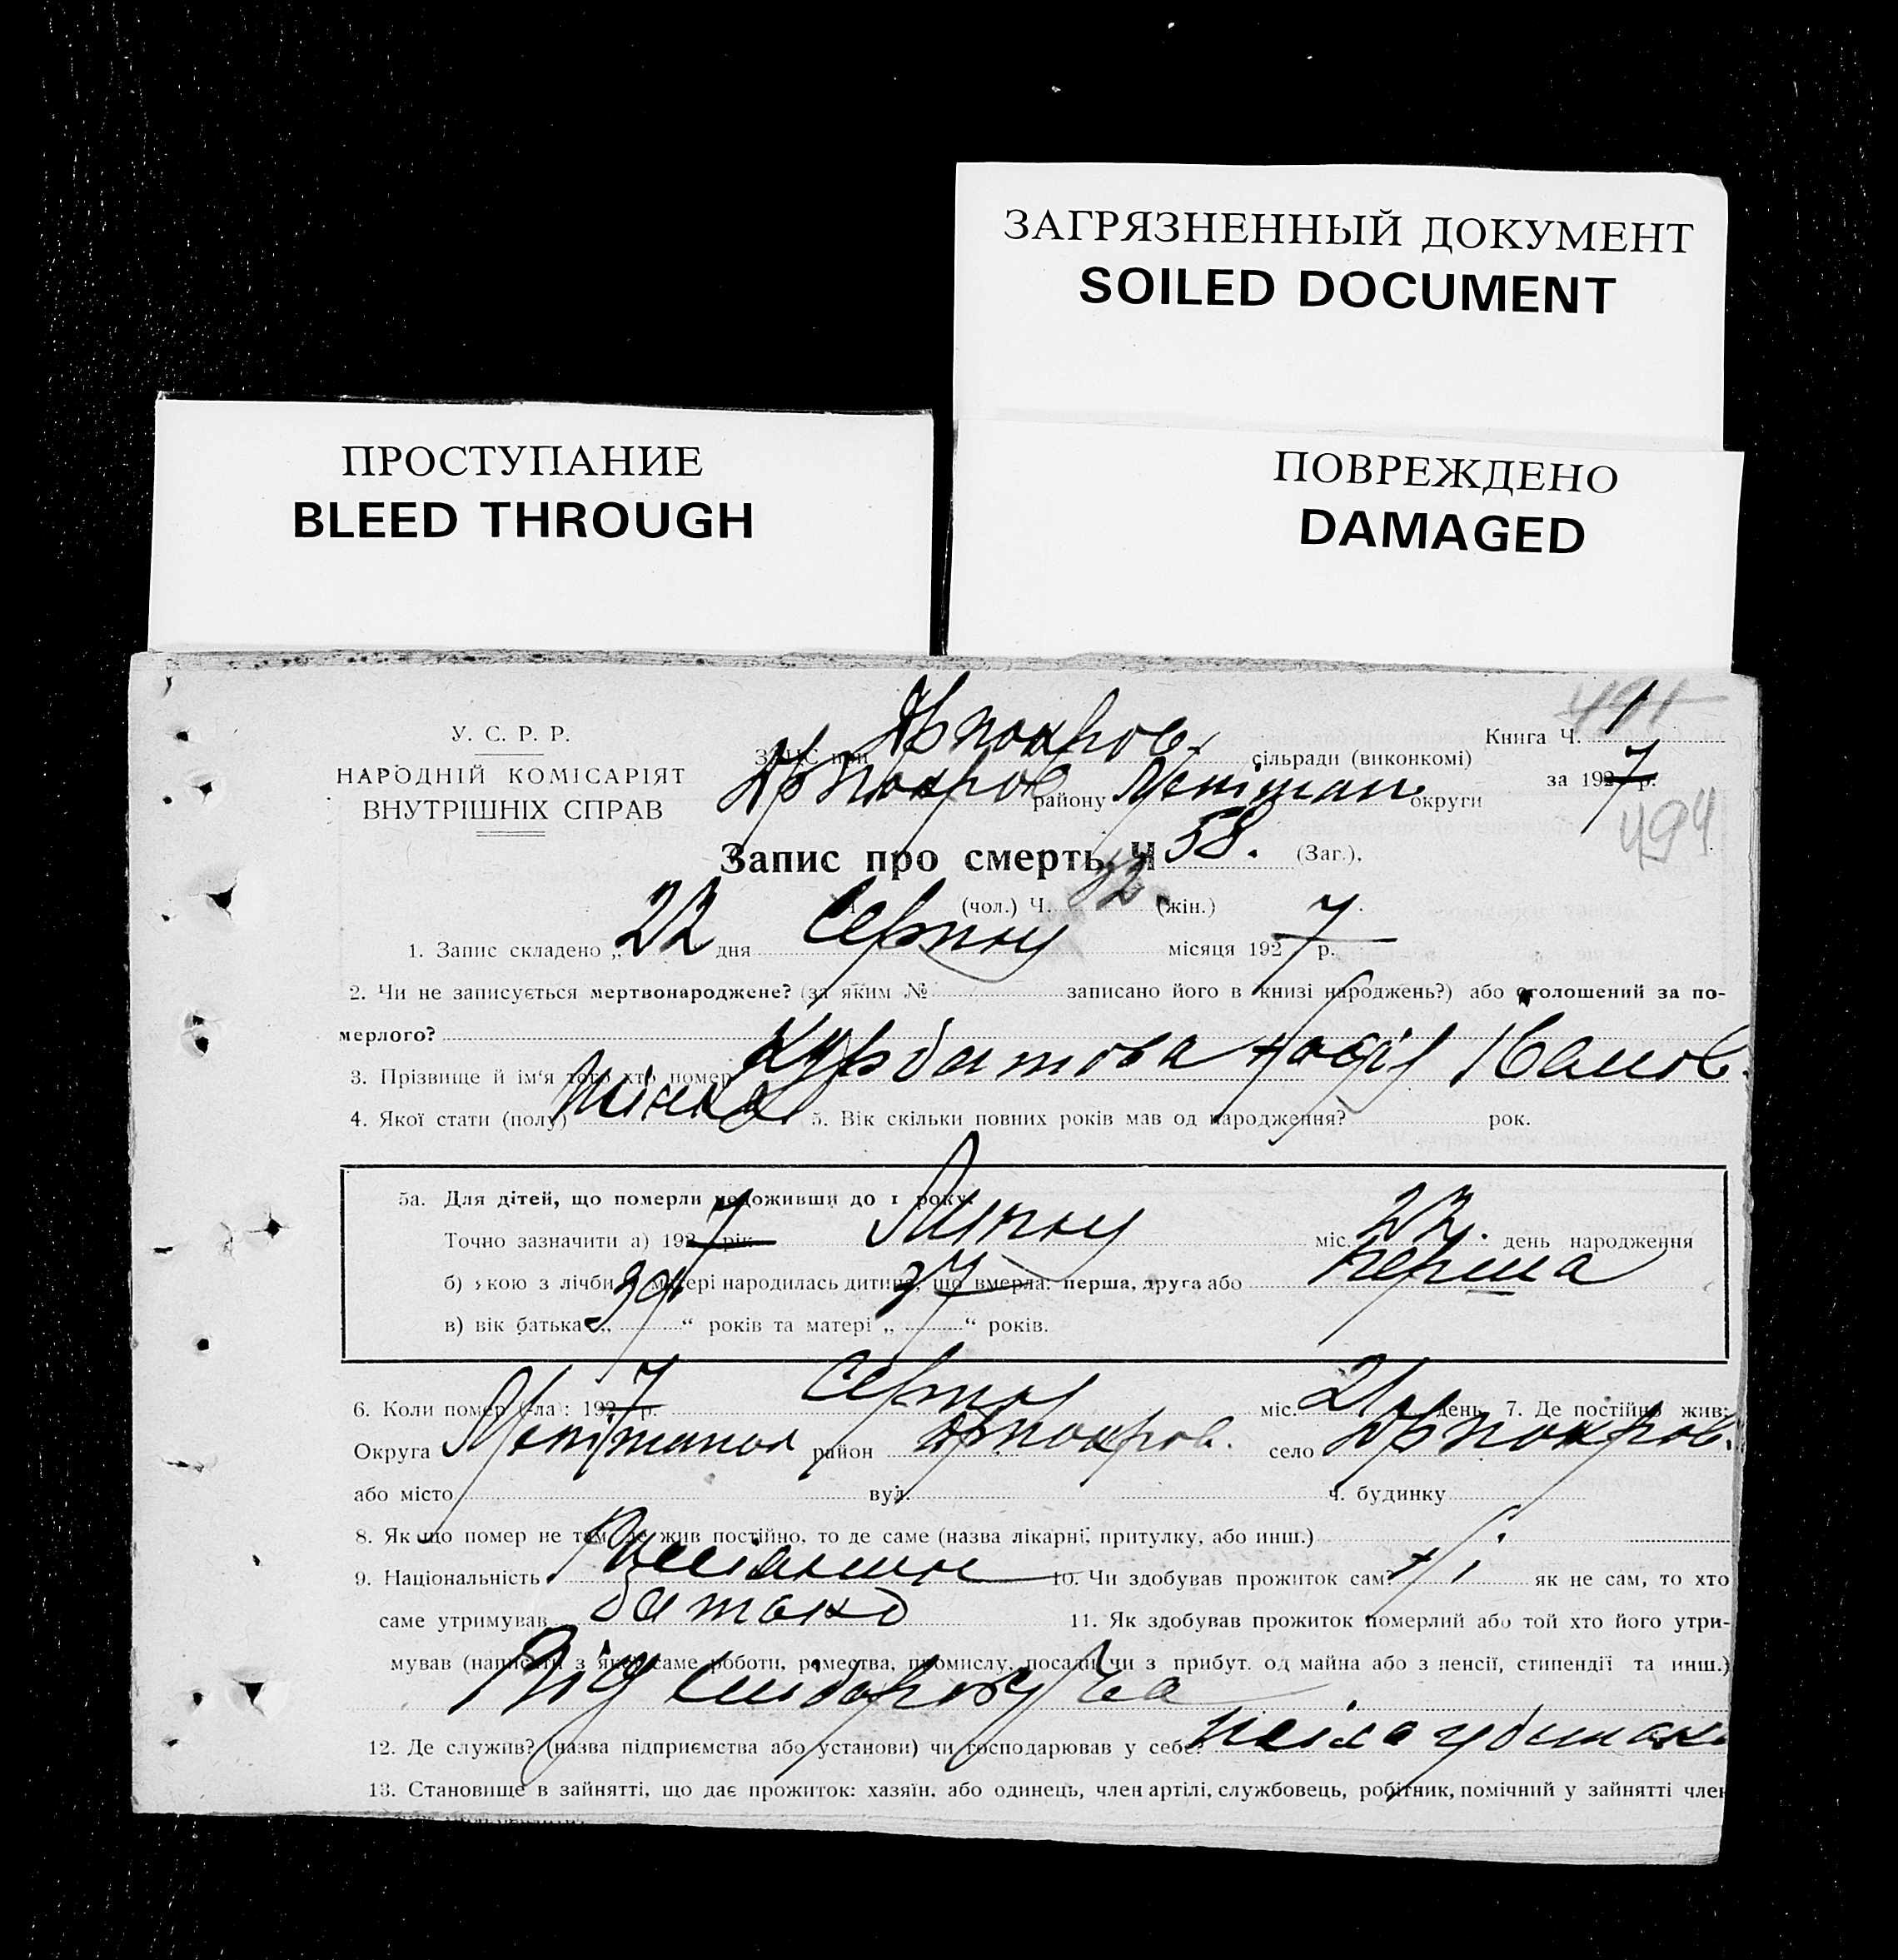 ЗАГРЯЗНЕННЫЙ ДОКУМЕНТ
SOILED DOCUMENT
ПРОСТУПАНИЕ
BLEED THROUGH
ПОВРЕЖДЕНО
DAMAGED
У. С. Р. Р.
НАРОДНІЙ КОМІСАРІЯТ
ВНУТРІШНІХ СПРАВ
ЗАГС при сільради (виконкомі)
району округи
Книга Ч. 1
за 1927 р.
494
Запис про смерть, Ч 58. (Заг.).
(чол.) Ч. 32. (жін.)
1. Запис складено „ 22 дня Серпня місяця 1927 р.
2. Чи не записується мертвонароджене? (за яким № записано його в книзі народжень?) або оголошений за по-
мерлого?
3. Прізвище й ім'я того хто помер Курбатова Іванов.
4. Якої стати (полу) жінка 5. Вік скільки повних років мав од народження? рок.
5а. Для дітей, що померли недоживши до 1 року.
Точно зазначити а) 1927 рік Липня міс. 22. день народження
б) якою з лічби у матері народилась дитина, що вмерла: перша, друга або перша
в) вік батька „ “ років та матері „ 27 “ років.
6. Коли помер (-ла): 1927 р. Серпня міс. 21 день 7. Де постійно жив:
Округа район село
або місто вул. ч. будинку
8. Як що помер не там, де жив постійно, то де саме (назва лікарні, притулку, або инш.)
9. Національність 10. Чи здобував прожиток сам? ні як не сам, то хто
саме утримував батько 11. Як здобував прожиток померлий або той хто його утри-
мував (написати з якої саме роботи, ремества, промислу, посади чи з прибут. од майна або з пенсії, стипендії та инш.)
Від
12. Де служив? (назва підприємства або установи) чи господарював у себе?
13. Становище в зайнятті, що дає прожиток: хазяїн, або одинець, член артілі, службовець, робітник, помічний у зайнятті член